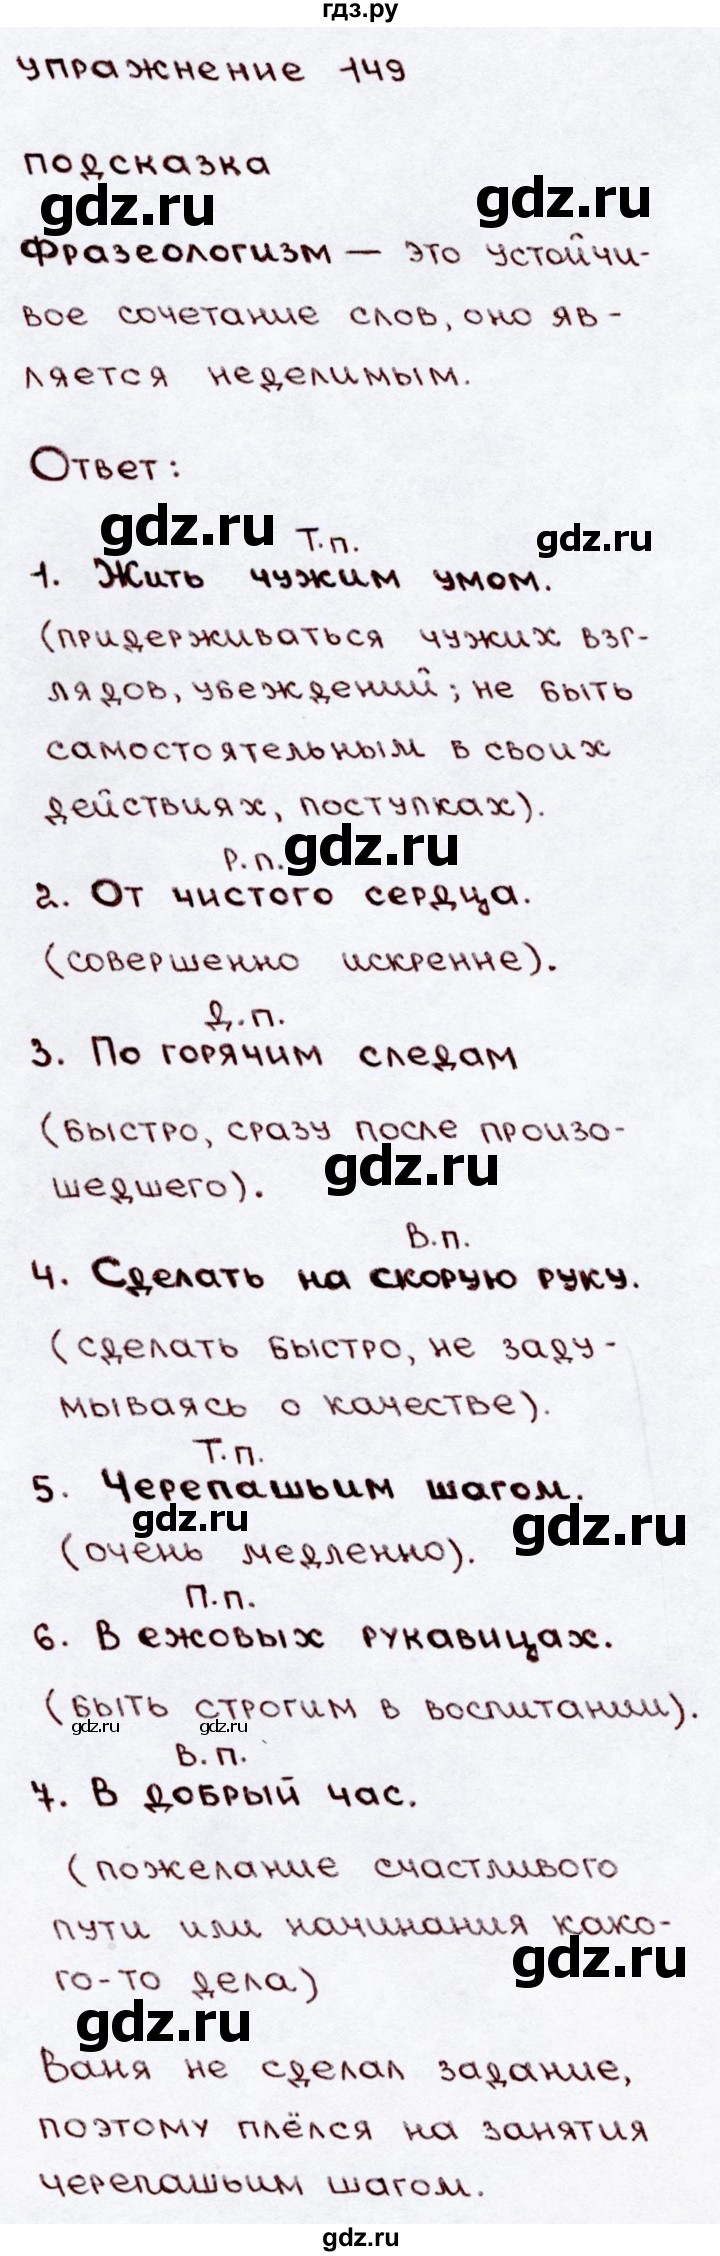 гдз.ру
упражнение 149
подсказка
gdz.ru gdz.ru
Фразеологизм — это устойчи-
вое сочетание слов, оно яв-
ляется неделимым.
Ответ:
gdz.ru Т.п. gdz.ru
1. Жить чужим умом.
(придерживаться чужих взг-
лядов, убеждений; не быть
самостоятельным в своих
действиях, поступках).
Р.п. gdz.ru
2. От чистого сердца.
(совершенно искренне).
Д.п.
3. По горячим следам
(быстро, сразу после произо-
gdz.ru
шедшего).
В.п.
4. Сделать на скорую руку.
(сделать быстро, не заду-
мываясь о качестве).
Т.п.
5. Черепашьим шагом.
gdz.ru gdz.ru
(очень медленно).
П.п.
6. В ежовых рукавицах.
(быть строгим в воспитании).
gdz.ru gdz.ru
В.п.
7. В добрый час.
(пожелание счастливого
пути или начинания како-
gdz.ru
го-то дела)
gdz.ru
Ваня не сделал задание,
поэтому плёлся на занятия
черепашьим шагом.
gdz.ru